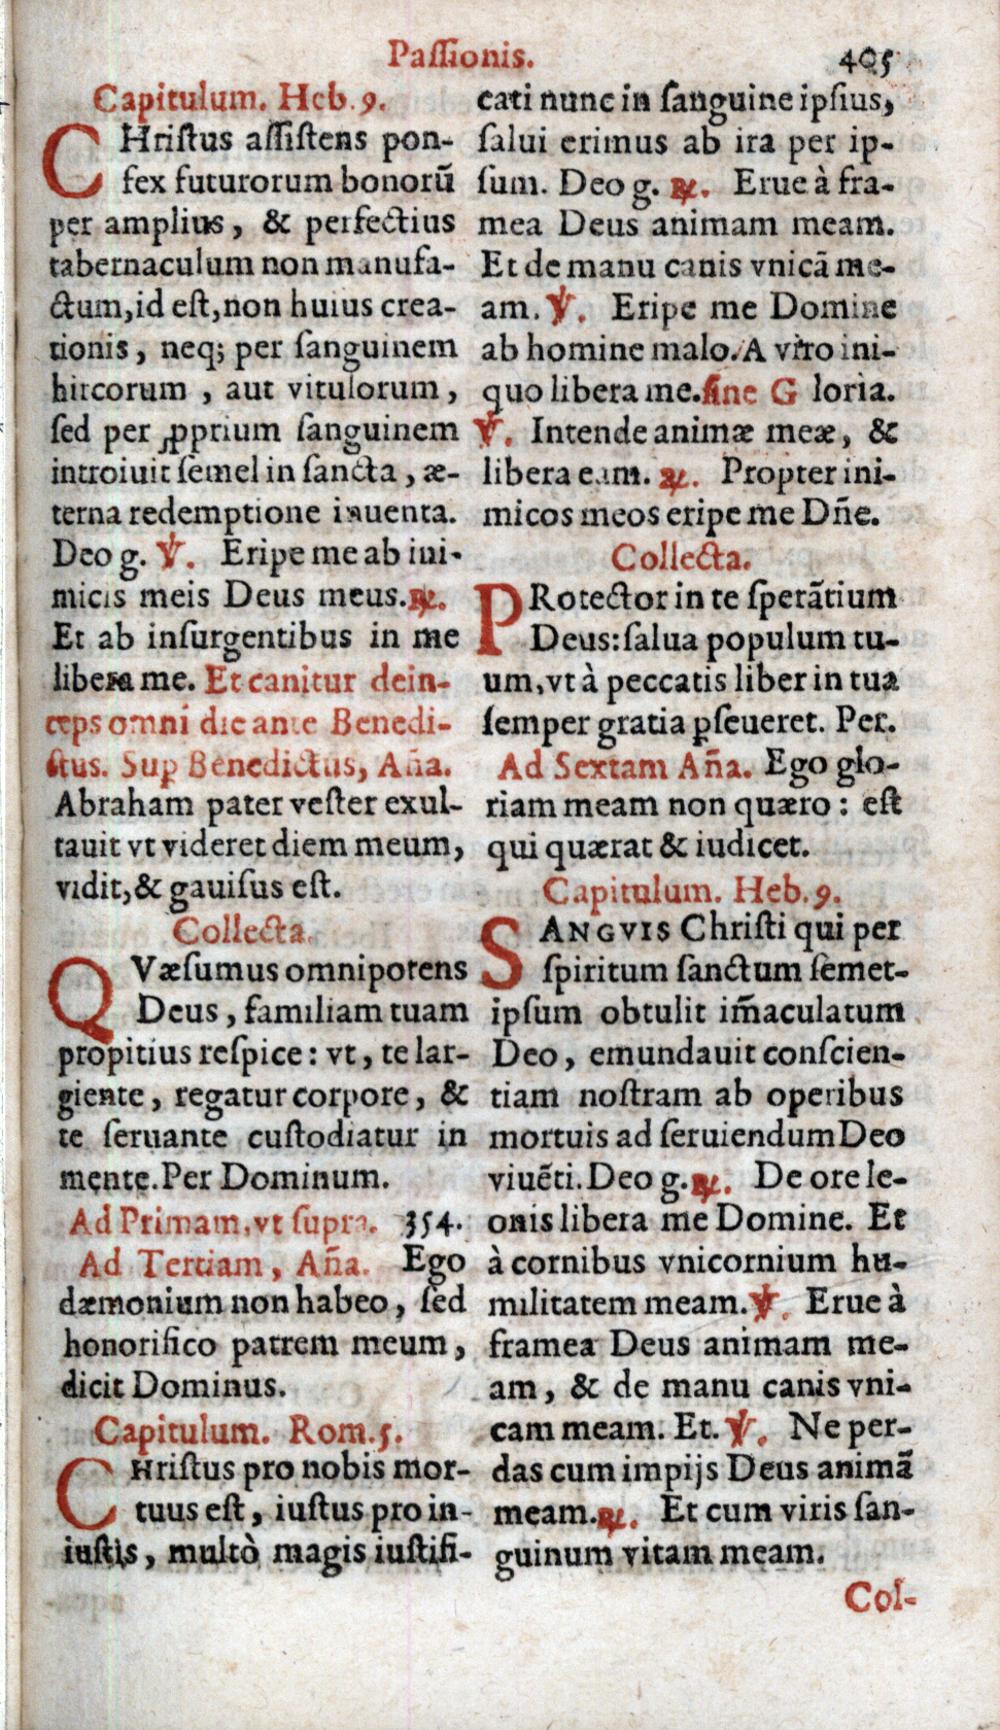 Passionis.
405
Capitulum. Heb. 9.
CHristus assistens pon-
fex futurorum bonorũ
per amplius, & perfectius
tabernaculum non manufa-
ctum, id est, non huius crea-
tionis, neq; per sanguinem
hircorum, aut vitulorum,
sed per ꝓprium sanguinem
introiuit semel in sancta, æ-
terna redemptione inuenta.
Deo g. ℣. Eripe me ab ini-
micis meis Deus meus. ℟.
Et ab insurgentibus in me
libera me. Et canitur dein-
ceps omni die ante Benedi-
ctus. Sup Benedictus, Aña.
Abraham pater vester exul-
tauit vt videret diem meum,
vidit, & gauisus est.
Collecta.
QVæsumus omnipotens
Deus, familiam tuam
propitius respice: vt, te lar-
giente, regatur corpore, &
te seruante custodiatur in
mente. Per Dominum.
Ad Primam, vt supra. 354.
Ad Tertiam, Aña. Ego
dæmonium non habeo, sed
honorifico patrem meum,
dicit Dominus.
Capitulum. Rom. 5.
CHristus pro nobis mor-
tuus est, iustus pro in-
iustis, multò magis iustifi-
cati nunc in sanguine ipsius,
salui erimus ab ira per ip-
sum. Deo g. ℟. Erue à fra-
mea Deus animam meam.
Et de manu canis vnicã me-
am. ℣. Eripe me Domine
ab homine malo. A viro ini-
quo libera me. sine Gloria.
℣. Intende animæ meæ, &
libera eam. ℟. Propter ini-
micos meos eripe me Dñe.
Collecta.
PRotector in te sperãtium
Deus: salua populum tu-
um, vt à peccatis liber in tua
semper gratia ꝑseueret. Per.
Ad Sextam Aña. Ego glo-
riam meam non quæro: est
qui quærat & iudicet.
Capitulum. Heb. 9.
SANGVIS Christi qui per
spiritum sanctum semet-
ipsum obtulit im̃aculatum
Deo, emundauit conscien-
tiam nostram ab operibus
mortuis ad seruiendum Deo
viuẽti. Deo g. ℟. De ore le-
onis libera me Domine. Et
à cornibus vnicornium hu-
militatem meam. ℣. Erue à
framea Deus animam me-
am, & de manu canis vni-
cam meam. Et. ℣. Ne per-
das cum impijs Deus animã
meam. ℟. Et cum viris san-
guinum vitam meam.
Col-